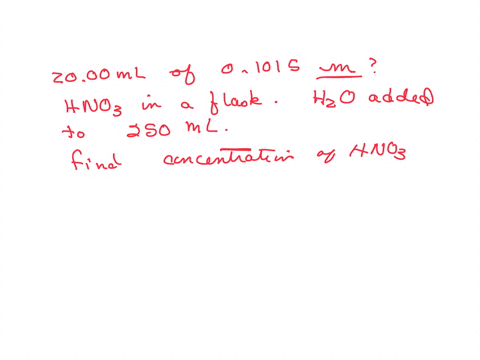 20.00 mL of 0.1015 m?
HNO3 in a flask. H2O added
to 250 mL.
find concentration of HNO3